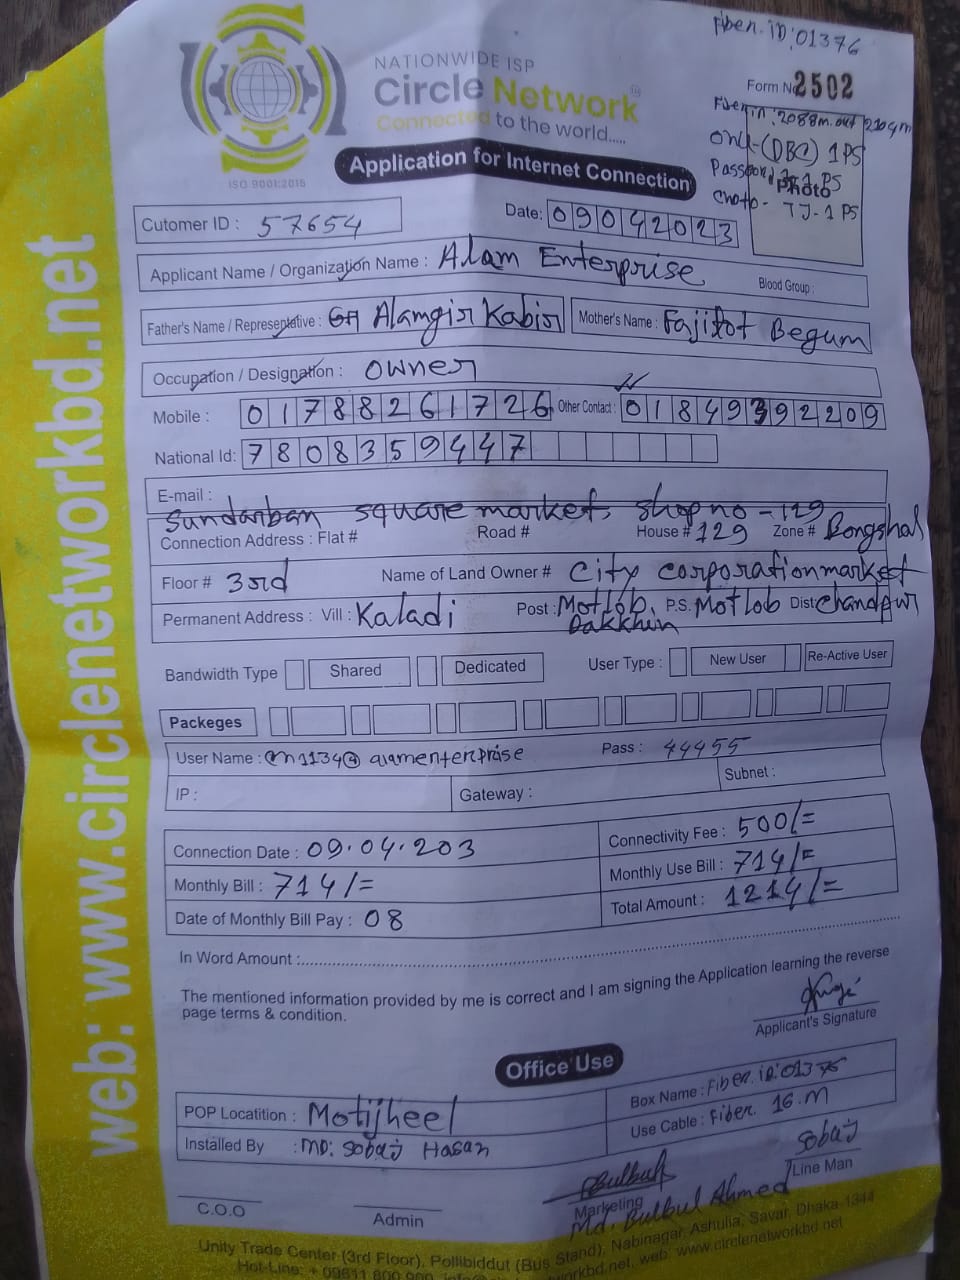 Fiber. iD: 01376
NATIONWIDE ISP
Circle Network
Connected to the world.....
ISO 9001:2015
Form No 2502
Fiber in: 2088m. out 2104m
onu-(DBC) 1 PS
Photo
TJ-1 PS
Application for Internet Connection
Cutomer ID : 57654
Date: 09042023
Applicant Name / Organization Name : Alam Enterprise
Blood Group :
Father's Name / Representative : Alamgir Kabir
Mother's Name : Fajilot Begum
Occupation / Designation : owner
Mobile : 01788261726
Other Contact : 01849392209
National Id: 7808359447
E-mail :
Sundarban square market, shop no - 129
Connection Address : Flat # Road # House # 129 Zone # Bongshal
Floor # 3rd Name of Land Owner # City corporation market
Permanent Address : Vill : Kaladi Post : Motlob, Dakkhin P.S. Motlob Dist: Chandpur
Bandwidth Type Shared Dedicated User Type : New User Re-Active User
Packeges
User Name : alamenterprise Pass : 44455
IP : Gateway : Subnet :
Connection Date : 09.04.203 Connectivity Fee : 500/=
Monthly Bill : 714/= Monthly Use Bill : 714/=
Date of Monthly Bill Pay : 08 Total Amount : 1214/=
In Word Amount :
The mentioned information provided by me is correct and I am signing the Application learning the reverse
page terms & condition.
Applicant's Signature
Office Use
POP Locatition : Motijheel
Box Name : Fiber. iD: 01376
Installed By : MD: Sobaj Hasan
Use Cable : Fiber. 16.M
Sobaj
Line Man
Bulbul
Marketing
Md. Bulbul Ahmed
C.O.O
Admin
Unity Trade Center (3rd Floor), Pollibiddut (Bus Stand), Nabinagar, Ashulia, Savar, Dhaka-1344
web: www.circlenetworkbd.net
web: www.circlenetworkbd.net